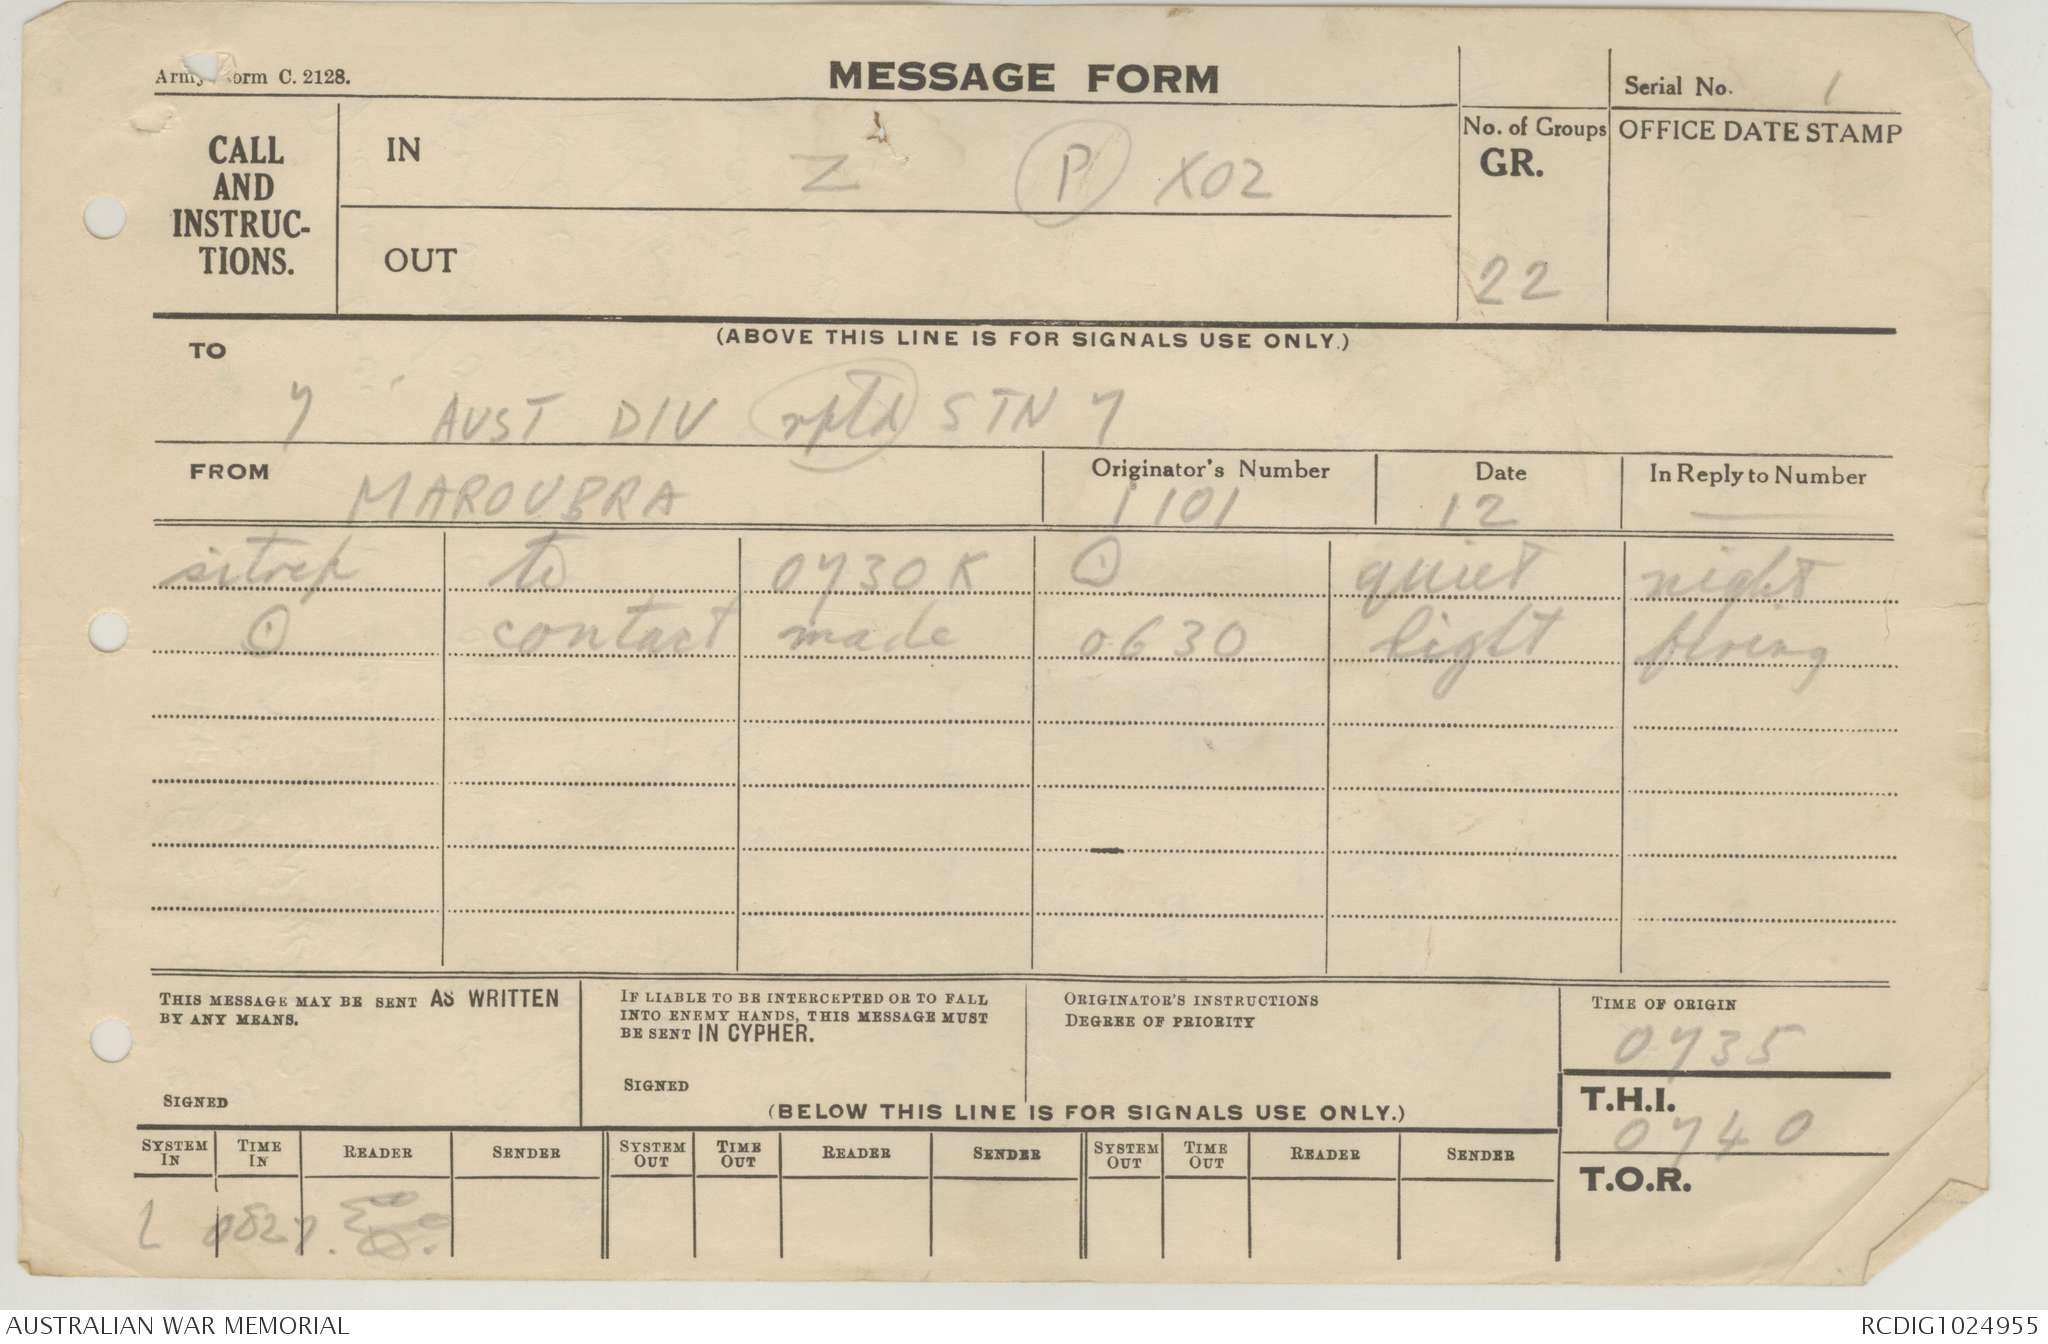 Army Form C. 2128.
MESSAGE FORM
Serial No. 1
CALL AND INSTRUC-TIONS.
IN
Z (P) X02
OUT
No. of Groups
GR.
22
OFFICE DATE STAMP
(ABOVE THIS LINE IS FOR SIGNALS USE ONLY.)
TO
7 AUST DIV (rptd) STN 7
FROM
MAROUBRA
Originator's Number
1101
Date
12
In Reply to Number
—
sitrep to 0730K ⊙ quiet night
⊙ contact made 0630 light firing
THIS MESSAGE MAY BE SENT AS WRITTEN
BY ANY MEANS.
SIGNED
IF LIABLE TO BE INTERCEPTED OR TO FALL
INTO ENEMY HANDS, THIS MESSAGE MUST
BE SENT IN CYPHER.
SIGNED
ORIGINATOR'S INSTRUCTIONS
DEGREE OF PRIORITY
TIME OF ORIGIN
0735
T.H.I.
0740
T.O.R.
(BELOW THIS LINE IS FOR SIGNALS USE ONLY.)
SYSTEM IN TIME IN READER SENDER SYSTEM OUT TIME OUT READER SENDER SYSTEM OUT TIME OUT READER SENDER
L 0827.
AUSTRALIAN WAR MEMORIAL
RCDIG1024955